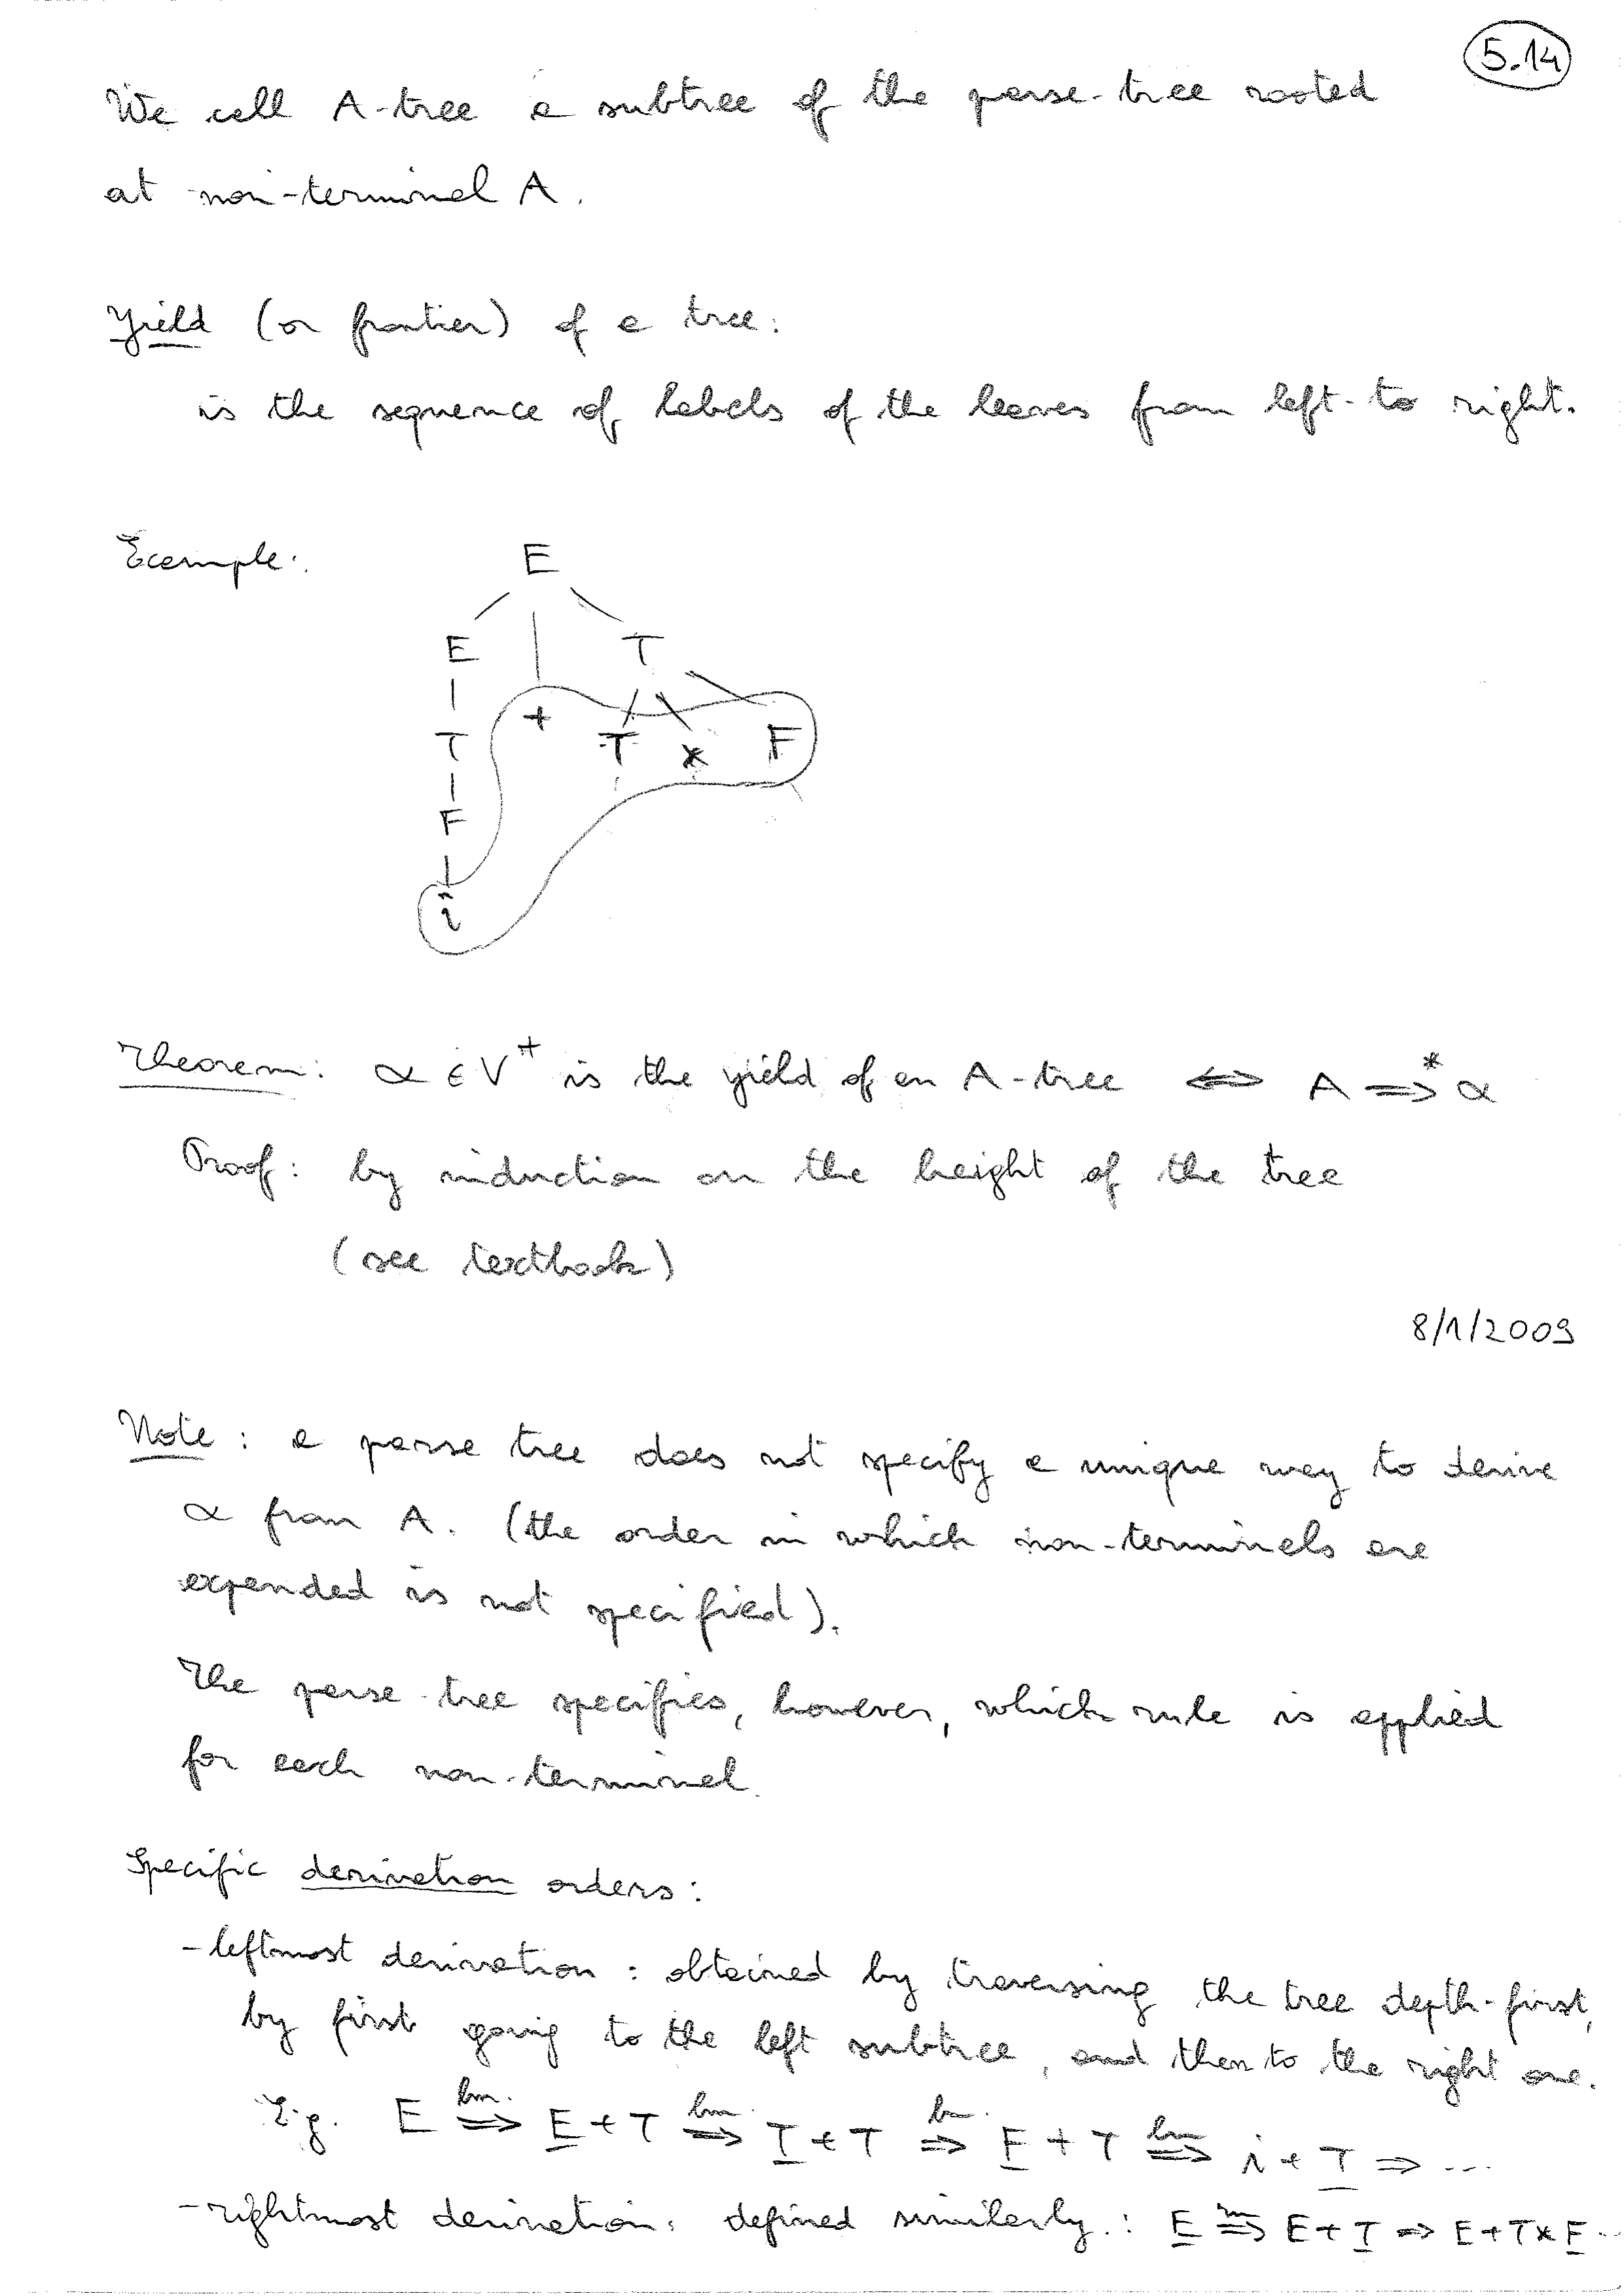 5.14
We call A-tree a subtree of the parse-tree rooted
at non-terminal A.
Yield (or frontier) of a tree:
is the sequence of labels of the leaves from left-to right.
Example:
E
E T
+
T T * F
F
i
Theorem: α ∈ V⁺ is the yield of an A-tree ⇔ A ⇒* α
Proof: by induction on the height of the tree
(see textbook)
8/1/2009
Note: a parse tree does not specify a unique way to derive
α from A. (the order in which non-terminals are
expanded is not specified).
The parse-tree specifies, however, which rule is applied
for each non-terminal.
Specific derivation orders:
- leftmost derivation: obtained by traversing the tree depth-first,
by first going to the left subtree, and then to the right one.
E.g. E lm⇒ E + T lm⇒ T + T lm⇒ F + T lm⇒ i + T ⇒ ...
- rightmost derivation: defined similarly: E rm⇒ E + T ⇒ E + T * F ...